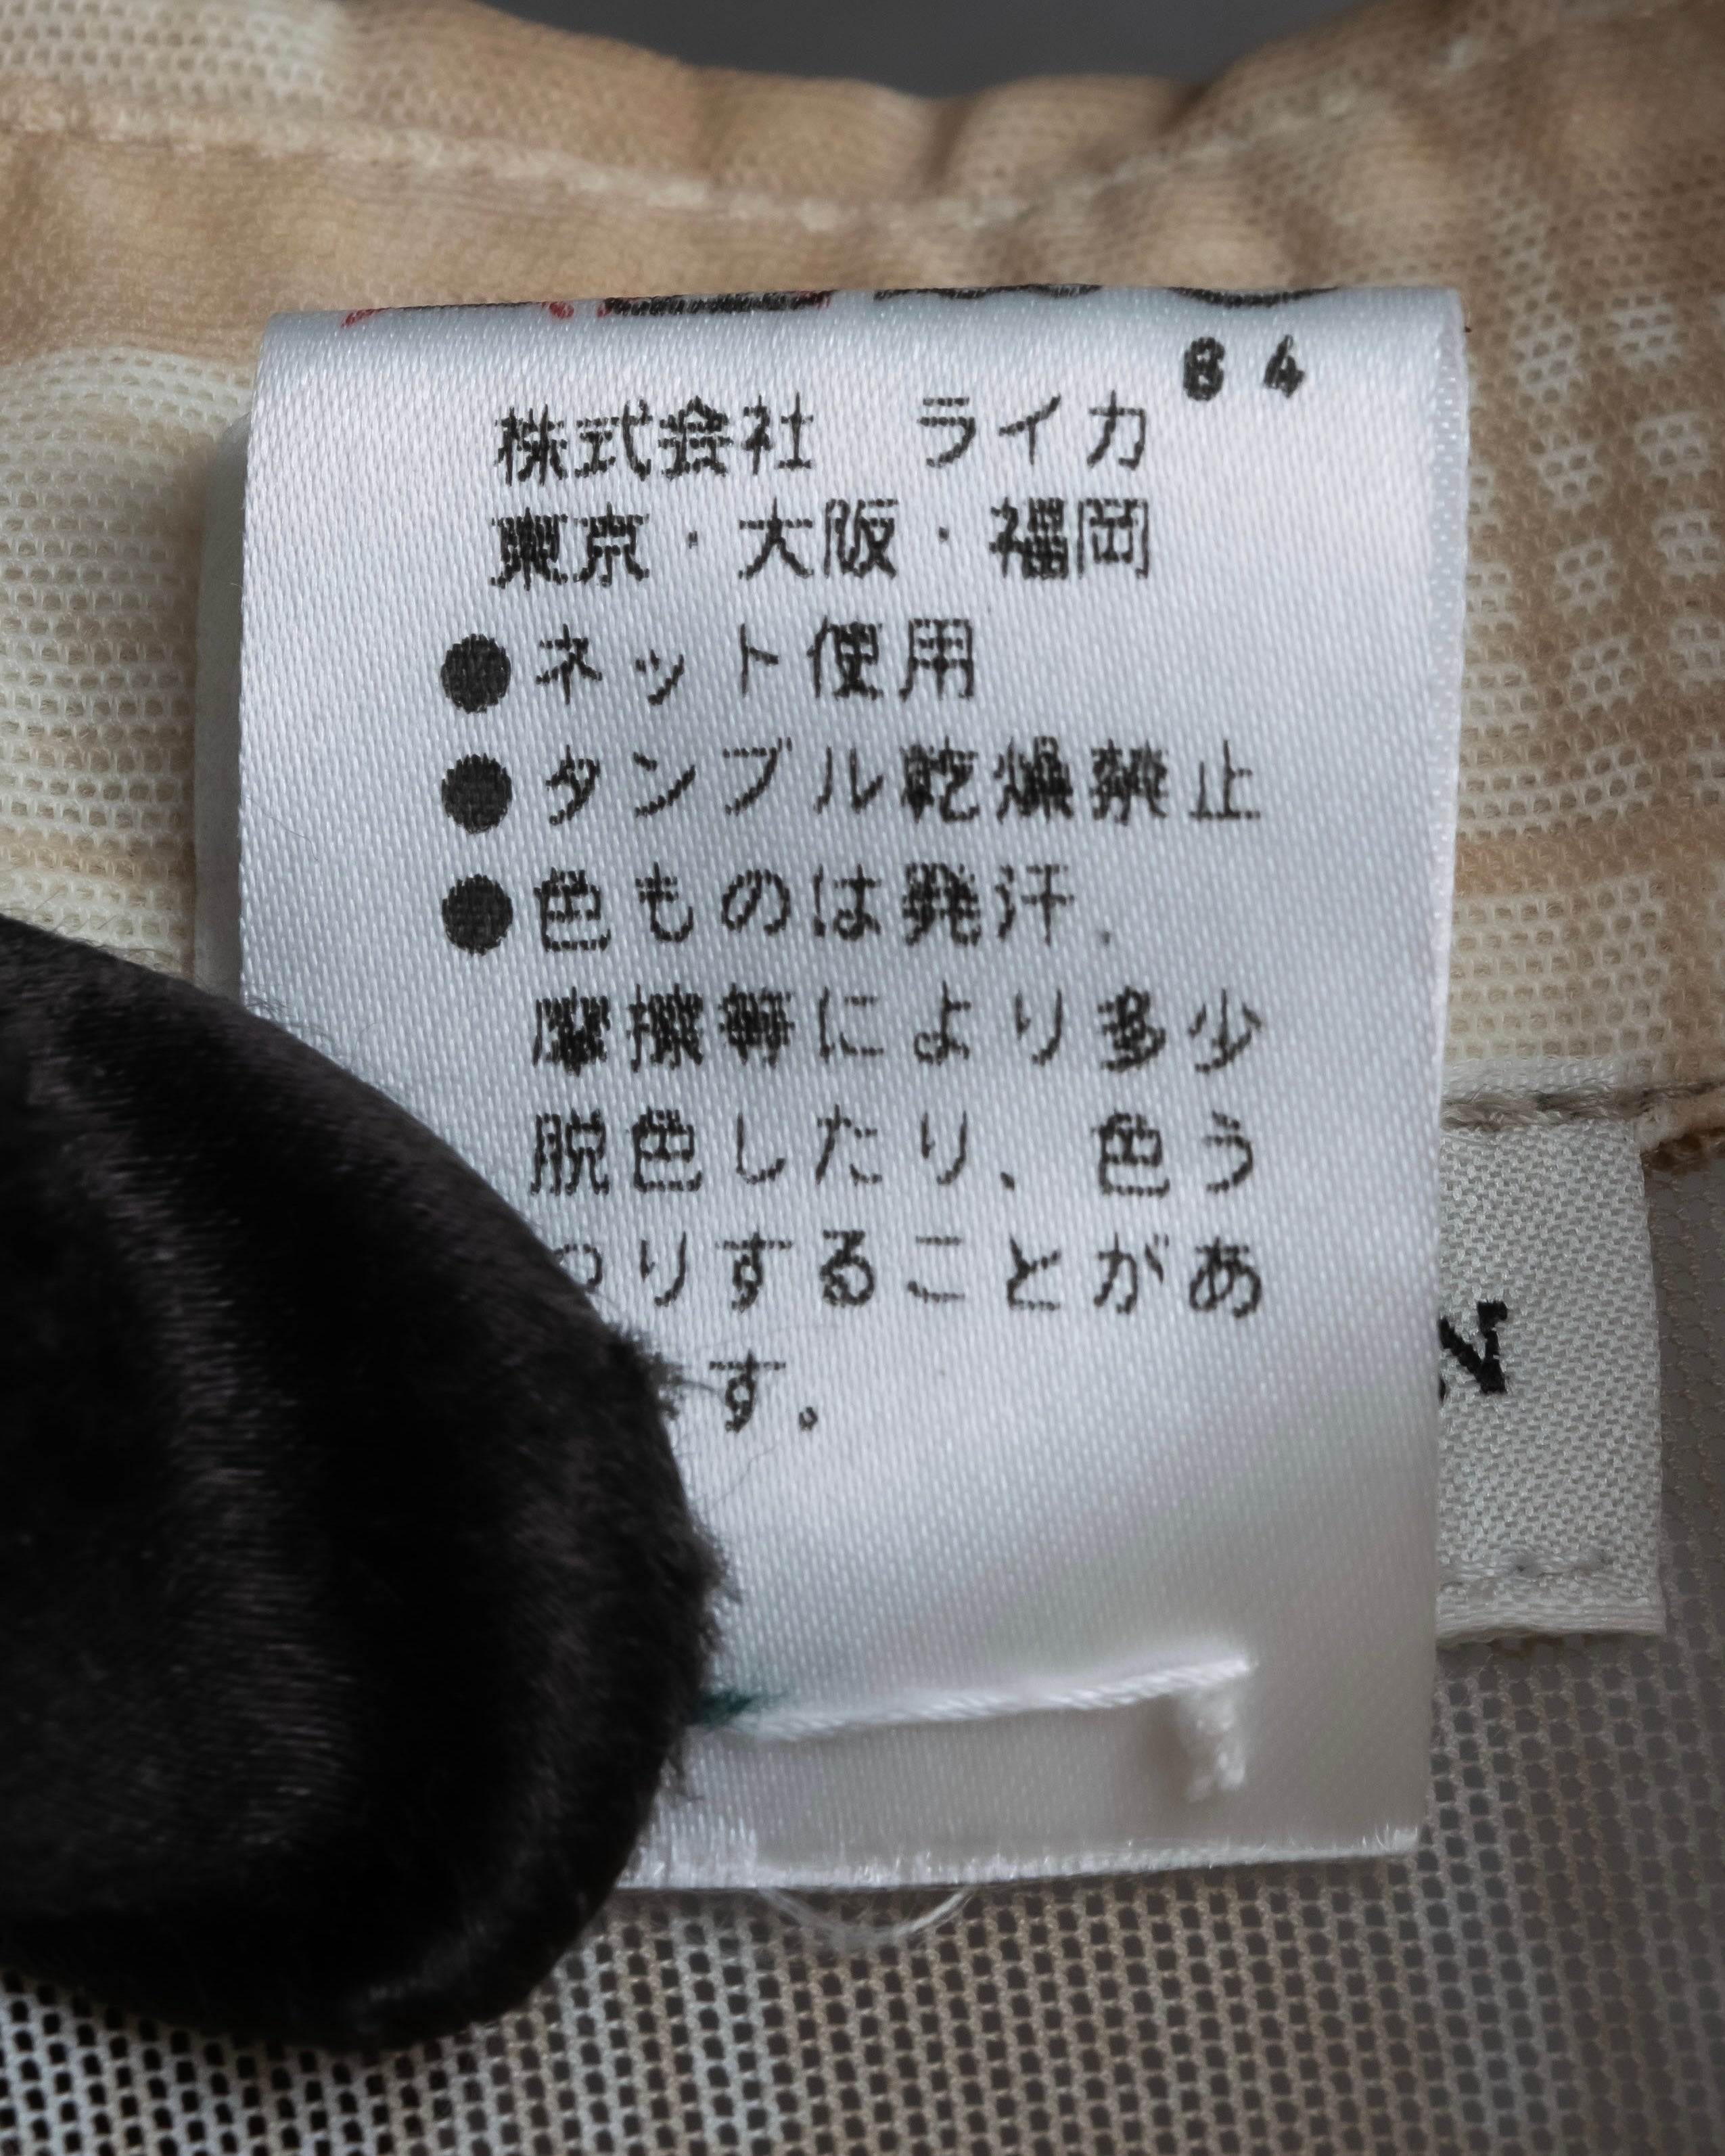 84
株式会社　ライカ
東京・大阪・福岡
●ネット使用
●タンブル乾燥禁止
●色ものは発汗.
摩擦等により多少
脱色したり、色う
つりすることがあ
す。